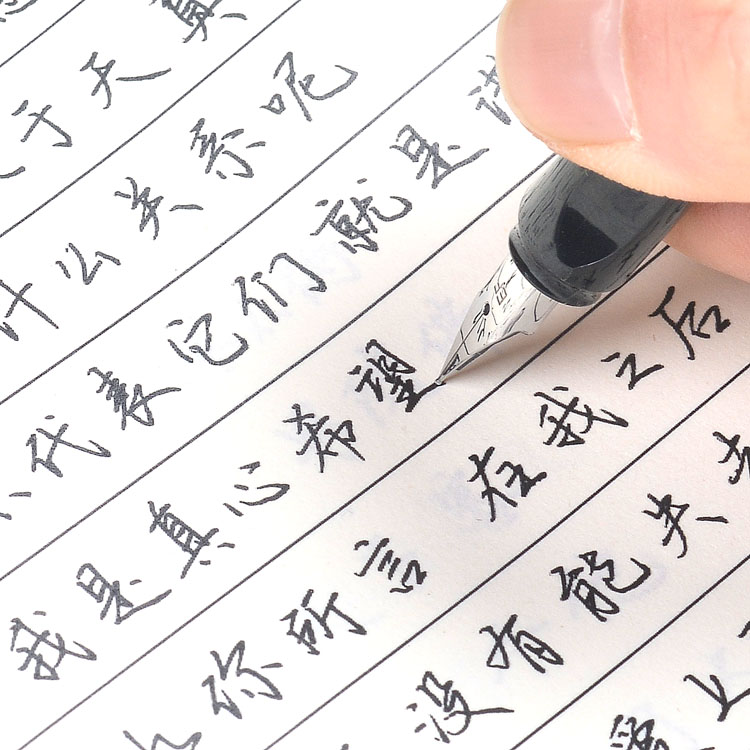 于天真
什么关系呢
代表记们就是
我是真心希望
你所言在我之后
没有能失去